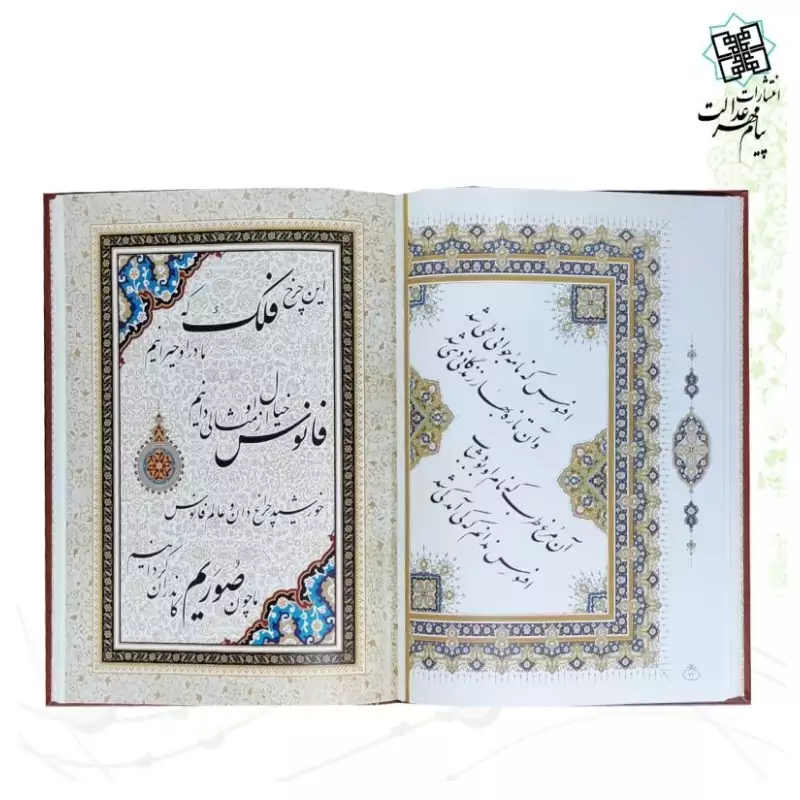 انتشارات
پیام مهر عدالت
افسوس که نامه جوانی طی شد
وآن تازه بهار زندگانی دی شد
آن مرغ طرب که نام او بود شباب
افسوس ندانم که کی آمد کی شد
این چرخ فلک که
ما در او حیرانیم
فانوس خیال از او مثالی دانیم
خورشید چراغ دان و عالم فانوس
ما چون صوریم کاندر آن گردانیم